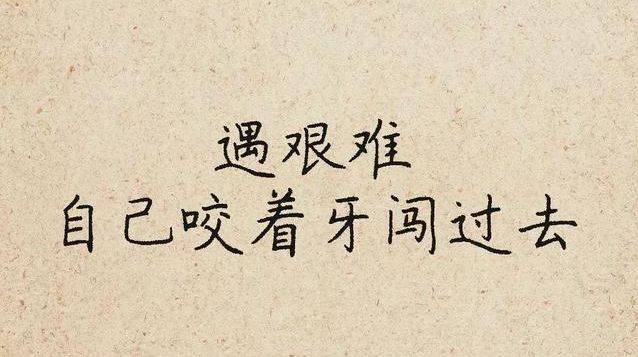 遇艰难
自己咬着牙闯过去